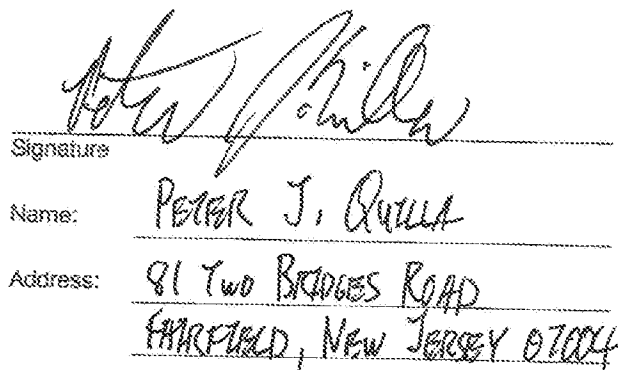 Signature
Name: PETER J. QUILLA
Address: 81 TWO BRIDGES ROAD
FAIRFIELD, NEW JERSEY 07004